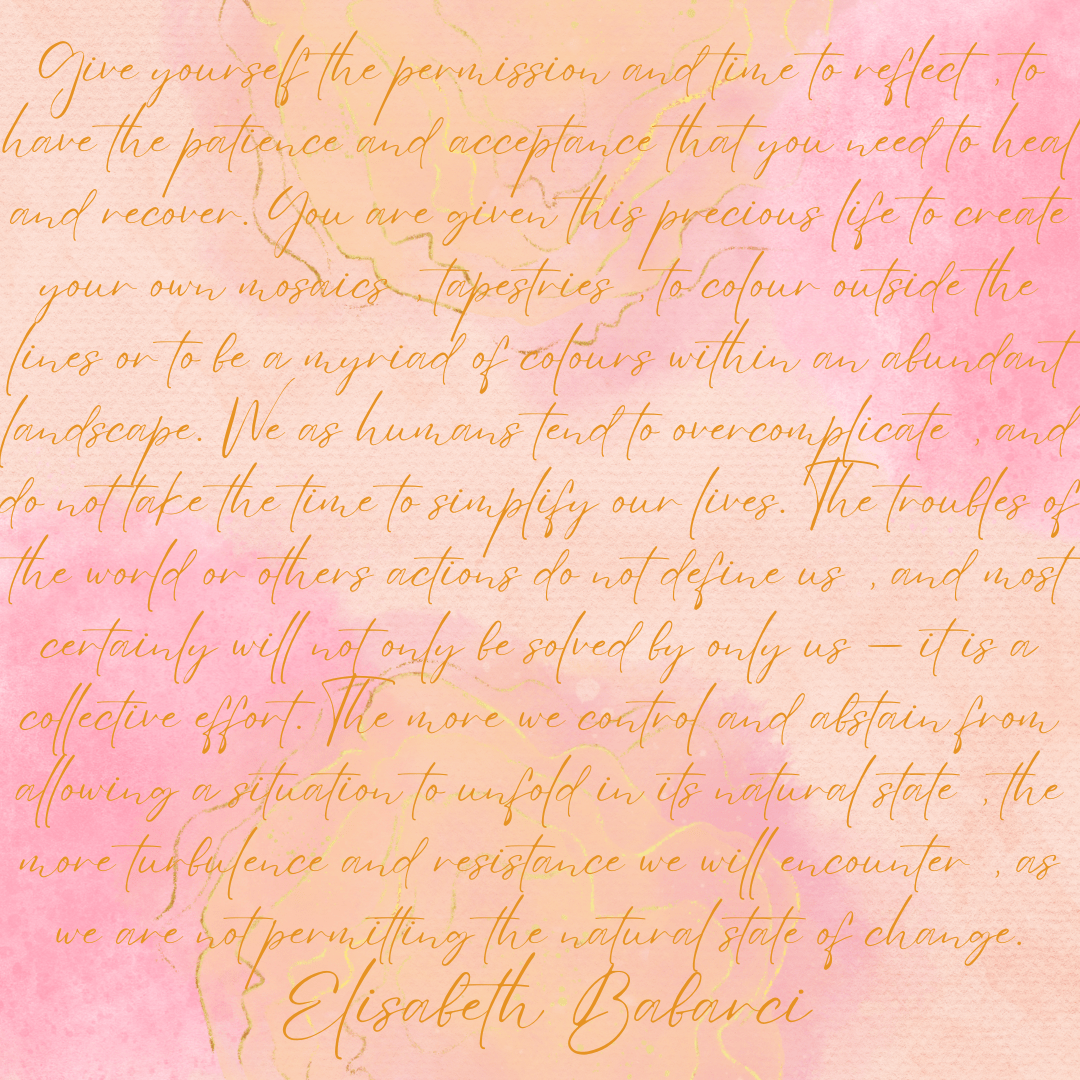 Give yourself the permission and time to reflect , to
have the patience and acceptance that you need to heal
and recover. You are given this precious life to create
your own mosaics , tapestries to colour outside the
lines or to be a myriad of colours within an abundant
landscape. We as humans tend to overcomplicate , and
do not take the time to simplify our lives. The troubles of
the world or others actions do not define us , and most
certainly will not only be solved by only us – it is a
collective effort. The more we control and abstain from
allowing a situation to unfold in its natural state , the
more turbulence and resistance we will encounter , as
we are not permitting the natural state of change.
Elisabeth Babarci